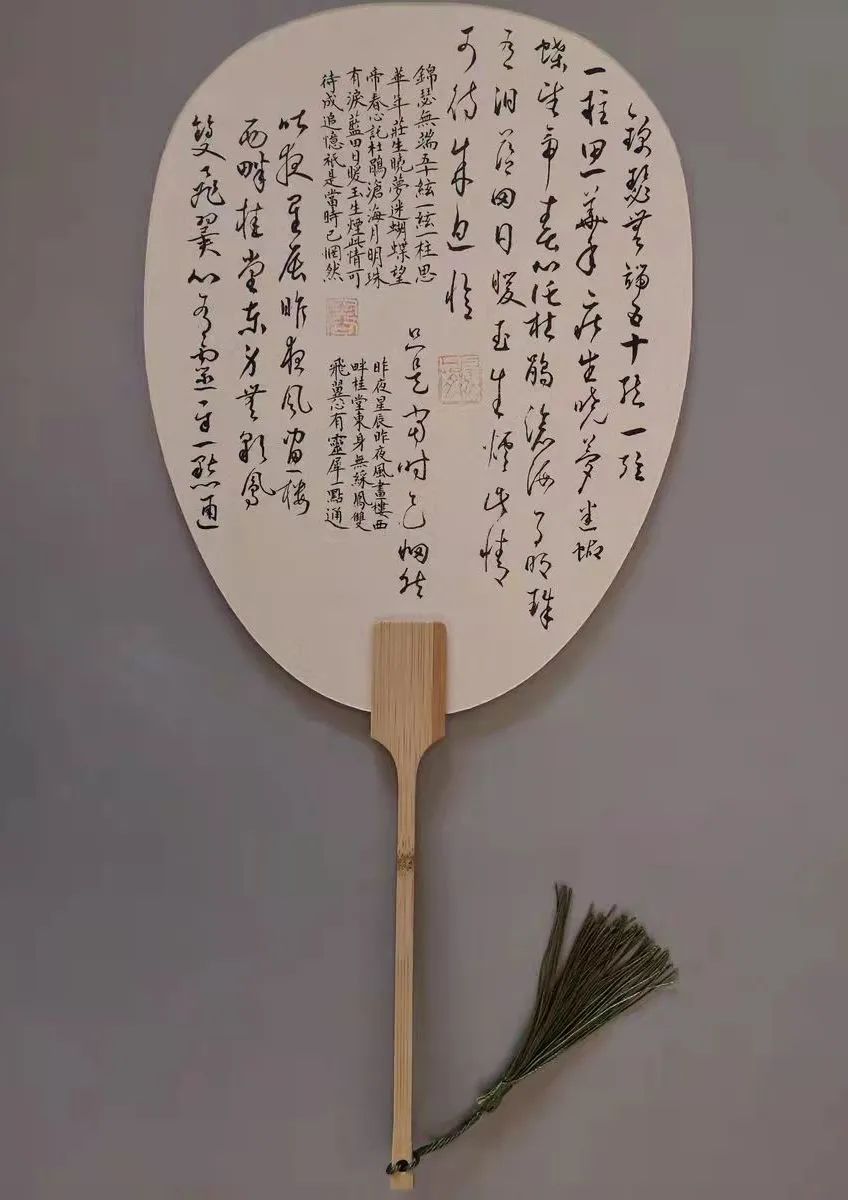 錦瑟無端五十弦一弦
一柱思華年莊生曉夢迷蝴
蝶望帝春心託杜鵑滄海月明珠
有泪藍田日暖玉生煙此情
可待成追憶
只是當時已惘然
錦瑟無端五十絃一絃一柱思
華年莊生曉夢迷蝴蝶望
帝春心託杜鵑滄海月明珠
有淚藍田日暖玉生煙此情可
待成追憶祇是當時已惘然
昨夜星辰昨夜風畫樓西
畔桂堂東身無綵鳳雙
飛翼心有靈犀一點通
昨夜星辰昨夜風畫樓
西畔桂堂東身無彩鳳
雙飛翼心有靈犀一點通